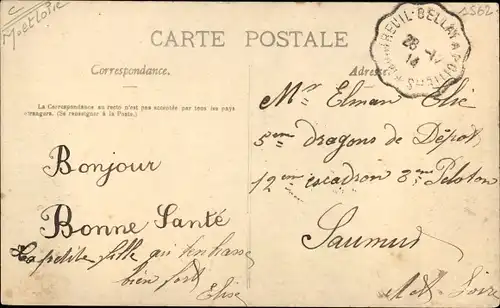 C
M et Loire
1562
CARTE POSTALE
MONTREUIL-BELLAY A POITIERS
28 -IV
14
Correspondance.
Adresse
La Correspondance au recto n'est pas acceptée par tous les pays
étrangers. (Se renseigner à la Poste.)
Bonjour
Bonne Santé
La petite fille qui t'enbrasse
bien fort
Elise
Mr Elman Elie
5em dragons de Dépot
12em escadron 3em Peloton
Saumur
M et Loire